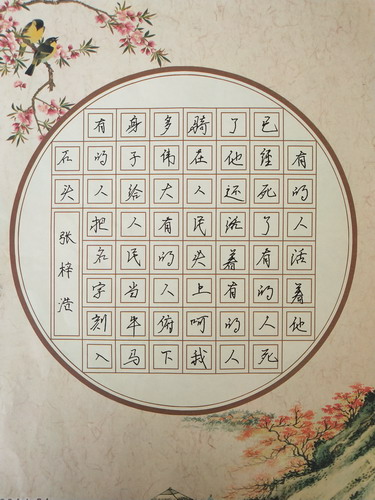 有的人活着他
已经死了有的人死
了他还活着有的人
骑在人民头上呵我
多伟大有的人俯下
身子给人民当牛马
有的人把名字刻入
石头
张梓浩